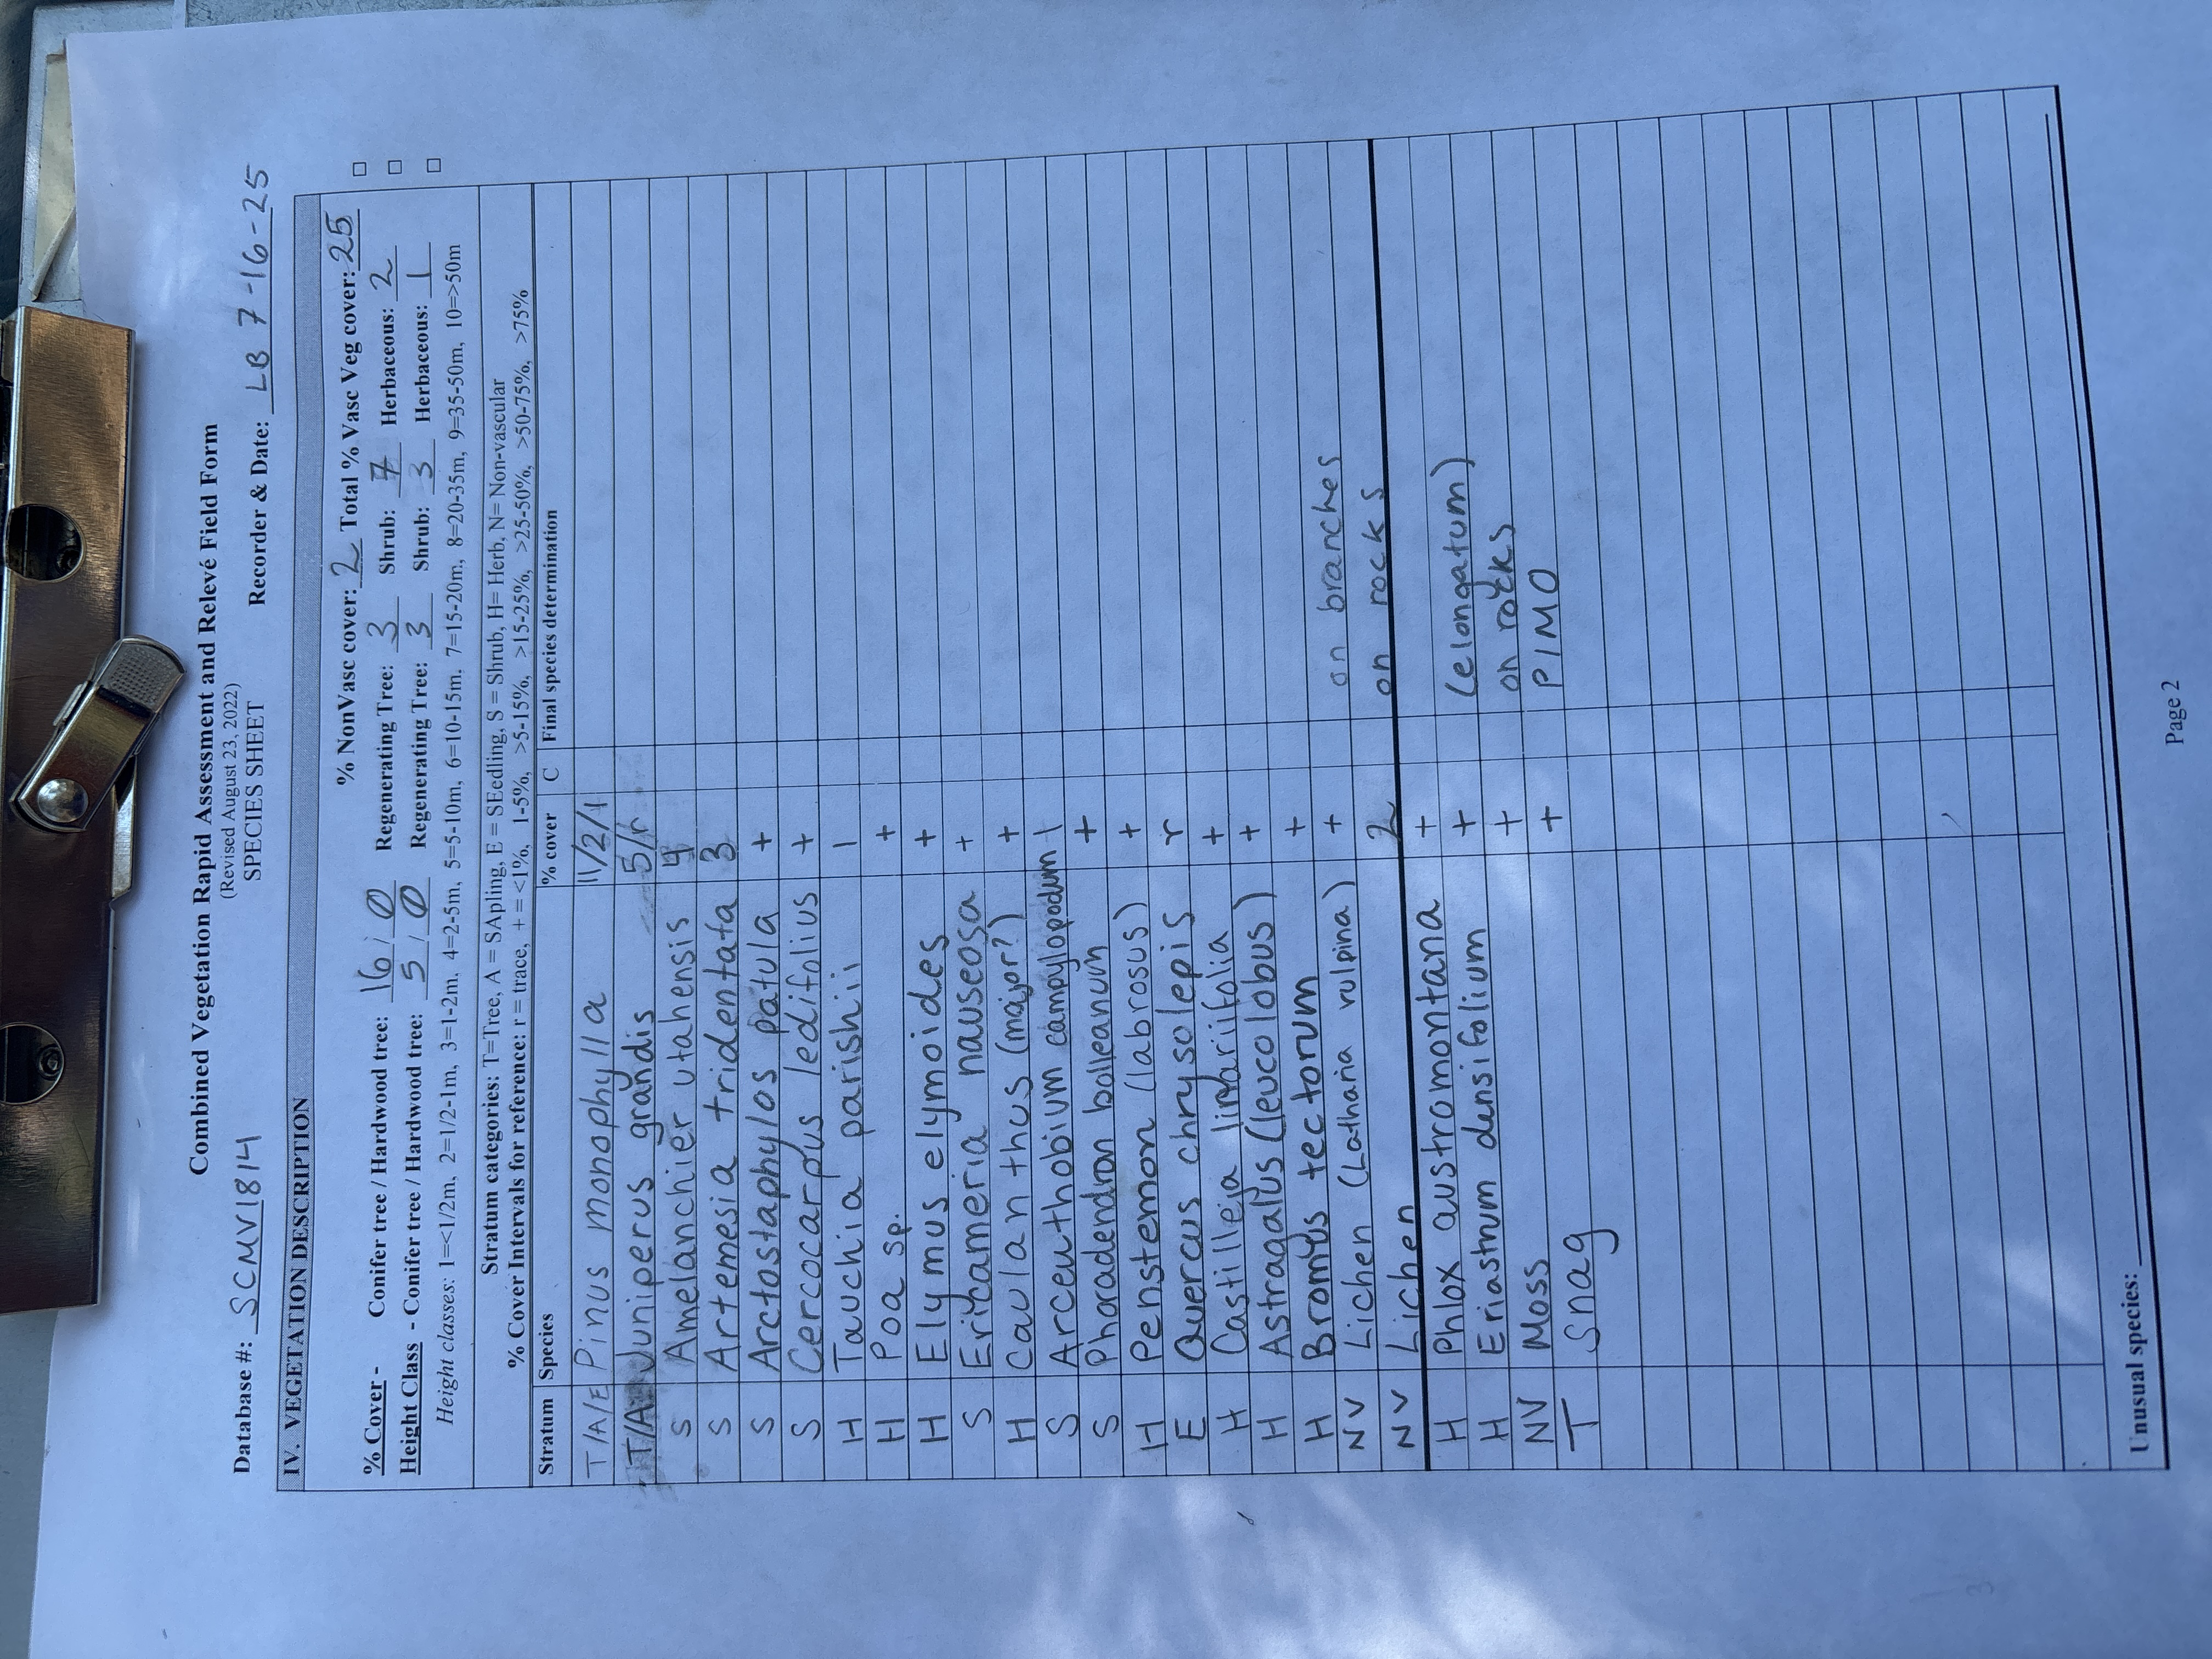 Combined Vegetation Rapid Assessment and Relevé Field Form
(Revised August 23, 2022)
SPECIES SHEET
Database #: SCMV1814 Recorder & Date: LB 7-16-25
IV. VEGETATION DESCRIPTION
% NonVasc cover: 2 Total % Vasc Veg cover: 25
% Cover - Conifer tree / Hardwood tree: 16 / 0 Regenerating Tree: 3 Shrub: 7 Herbaceous: 2
Height Class - Conifer tree / Hardwood tree: 5 / 0 Regenerating Tree: 3 Shrub: 3 Herbaceous: 1
Height classes: 1=<1/2m, 2=1/2-1m, 3=1-2m, 4=2-5m, 5=5-10m, 6=10-15m, 7=15-20m, 8=20-35m, 9=35-50m, 10=>50m
Stratum categories: T=Tree, A = SApling, E = SEedling, S = Shrub, H= Herb, N= Non-vascular
% Cover Intervals for reference: r = trace, + = <1%, 1-5%, >5-15%, >15-25%, >25-50%, >50-75%, >75%
Stratum Species % cover C Final species determination
T/A/E Pinus monophylla 11/2/1
T/A Juniperus grandis 5/r
S Amelanchier utahensis 4
S Artemesia tridentata 3
S Arctostaphylos patula +
S Cercocarpus ledifolius +
H Tauchia parishii 1
H Poa sp. +
H Elymus elymoides +
S Ericameria nauseosa +
H Caulanthus (major?) +
S Arceuthobium campylopodum 1
S Phoradendron bolleanum +
H Penstemon (labrosus) +
E Quercus chrysolepis r
H Castilleja linariifolia +
H Astragalus (leucolobus) +
H Bromus tectorum +
NV Lichen (Latharia vulpina) + on branches
NV Lichen 2 on rocks
H Phlox austromontana +
H Eriastrum densifolium + (elongatum)
NV Moss + on rocks
T Snag + PIMO
Unusual species:
Page 2